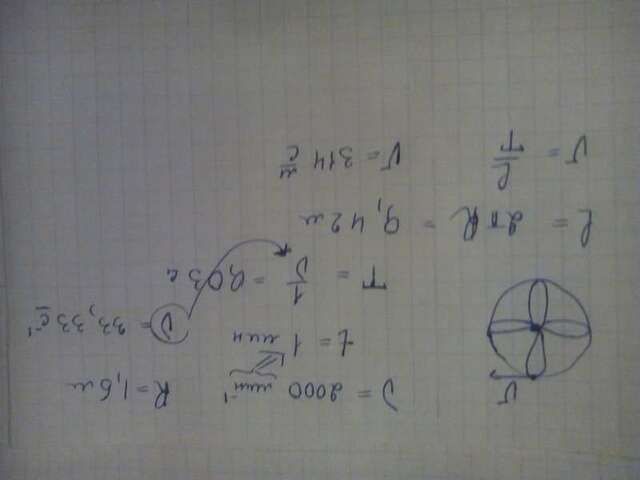 υ
ν = 2000 мин⁻¹ R = 1,5 м
t = 1 мин ν = 33,33 с⁻¹
T = 1/ν = 0,03 с
l = 2πR = 9,42 м
υ = l/T υ = 314 м/с